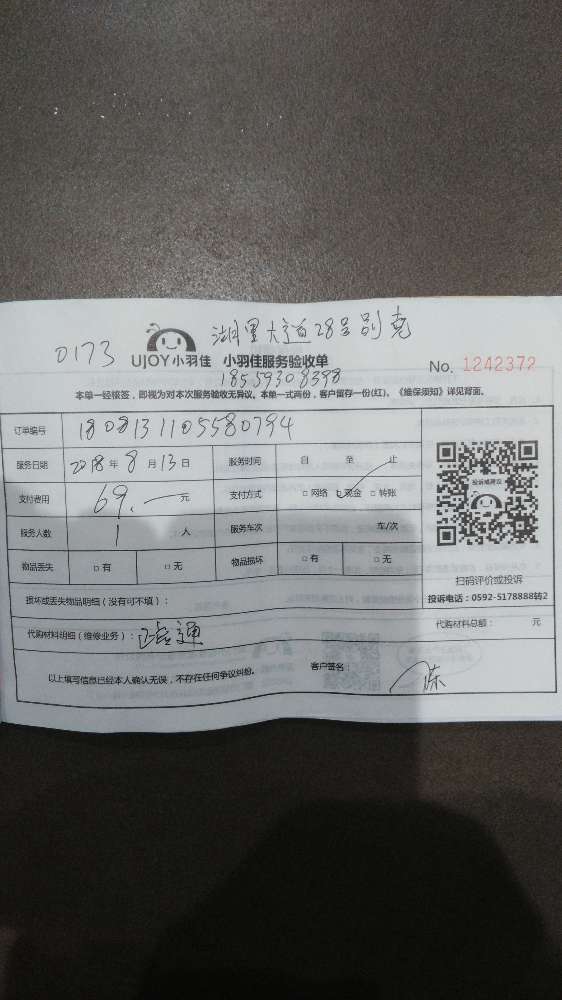 湖里大道28号别克
0173 UJOY小羽佳 小羽佳服务验收单
No. 1242372
18559308398
本单一经核签，即视为对本次服务验收无异议。本单一式两份，客户留存一份(红)。《维保须知》详见背面。
订单编号 1808131105580794
服务日期 2018年8月13日 服务时间 自 至 止
支付费用 69.— 元 支付方式 □网络 ☑现金 □转账
服务人数 1 人 服务车次 车/次
物品丢失 □有 □无 物品损坏 □有 □无
投诉或建议
扫码评价或投诉
投诉电话：0592-5178888转2
损坏或丢失物品明细（没有可不填）：
代购材料明细（维修业务）： 代购材料总额： 元
以上填写信息已经本人确认无误，不存在任何争议纠纷。 客户签名： 陈